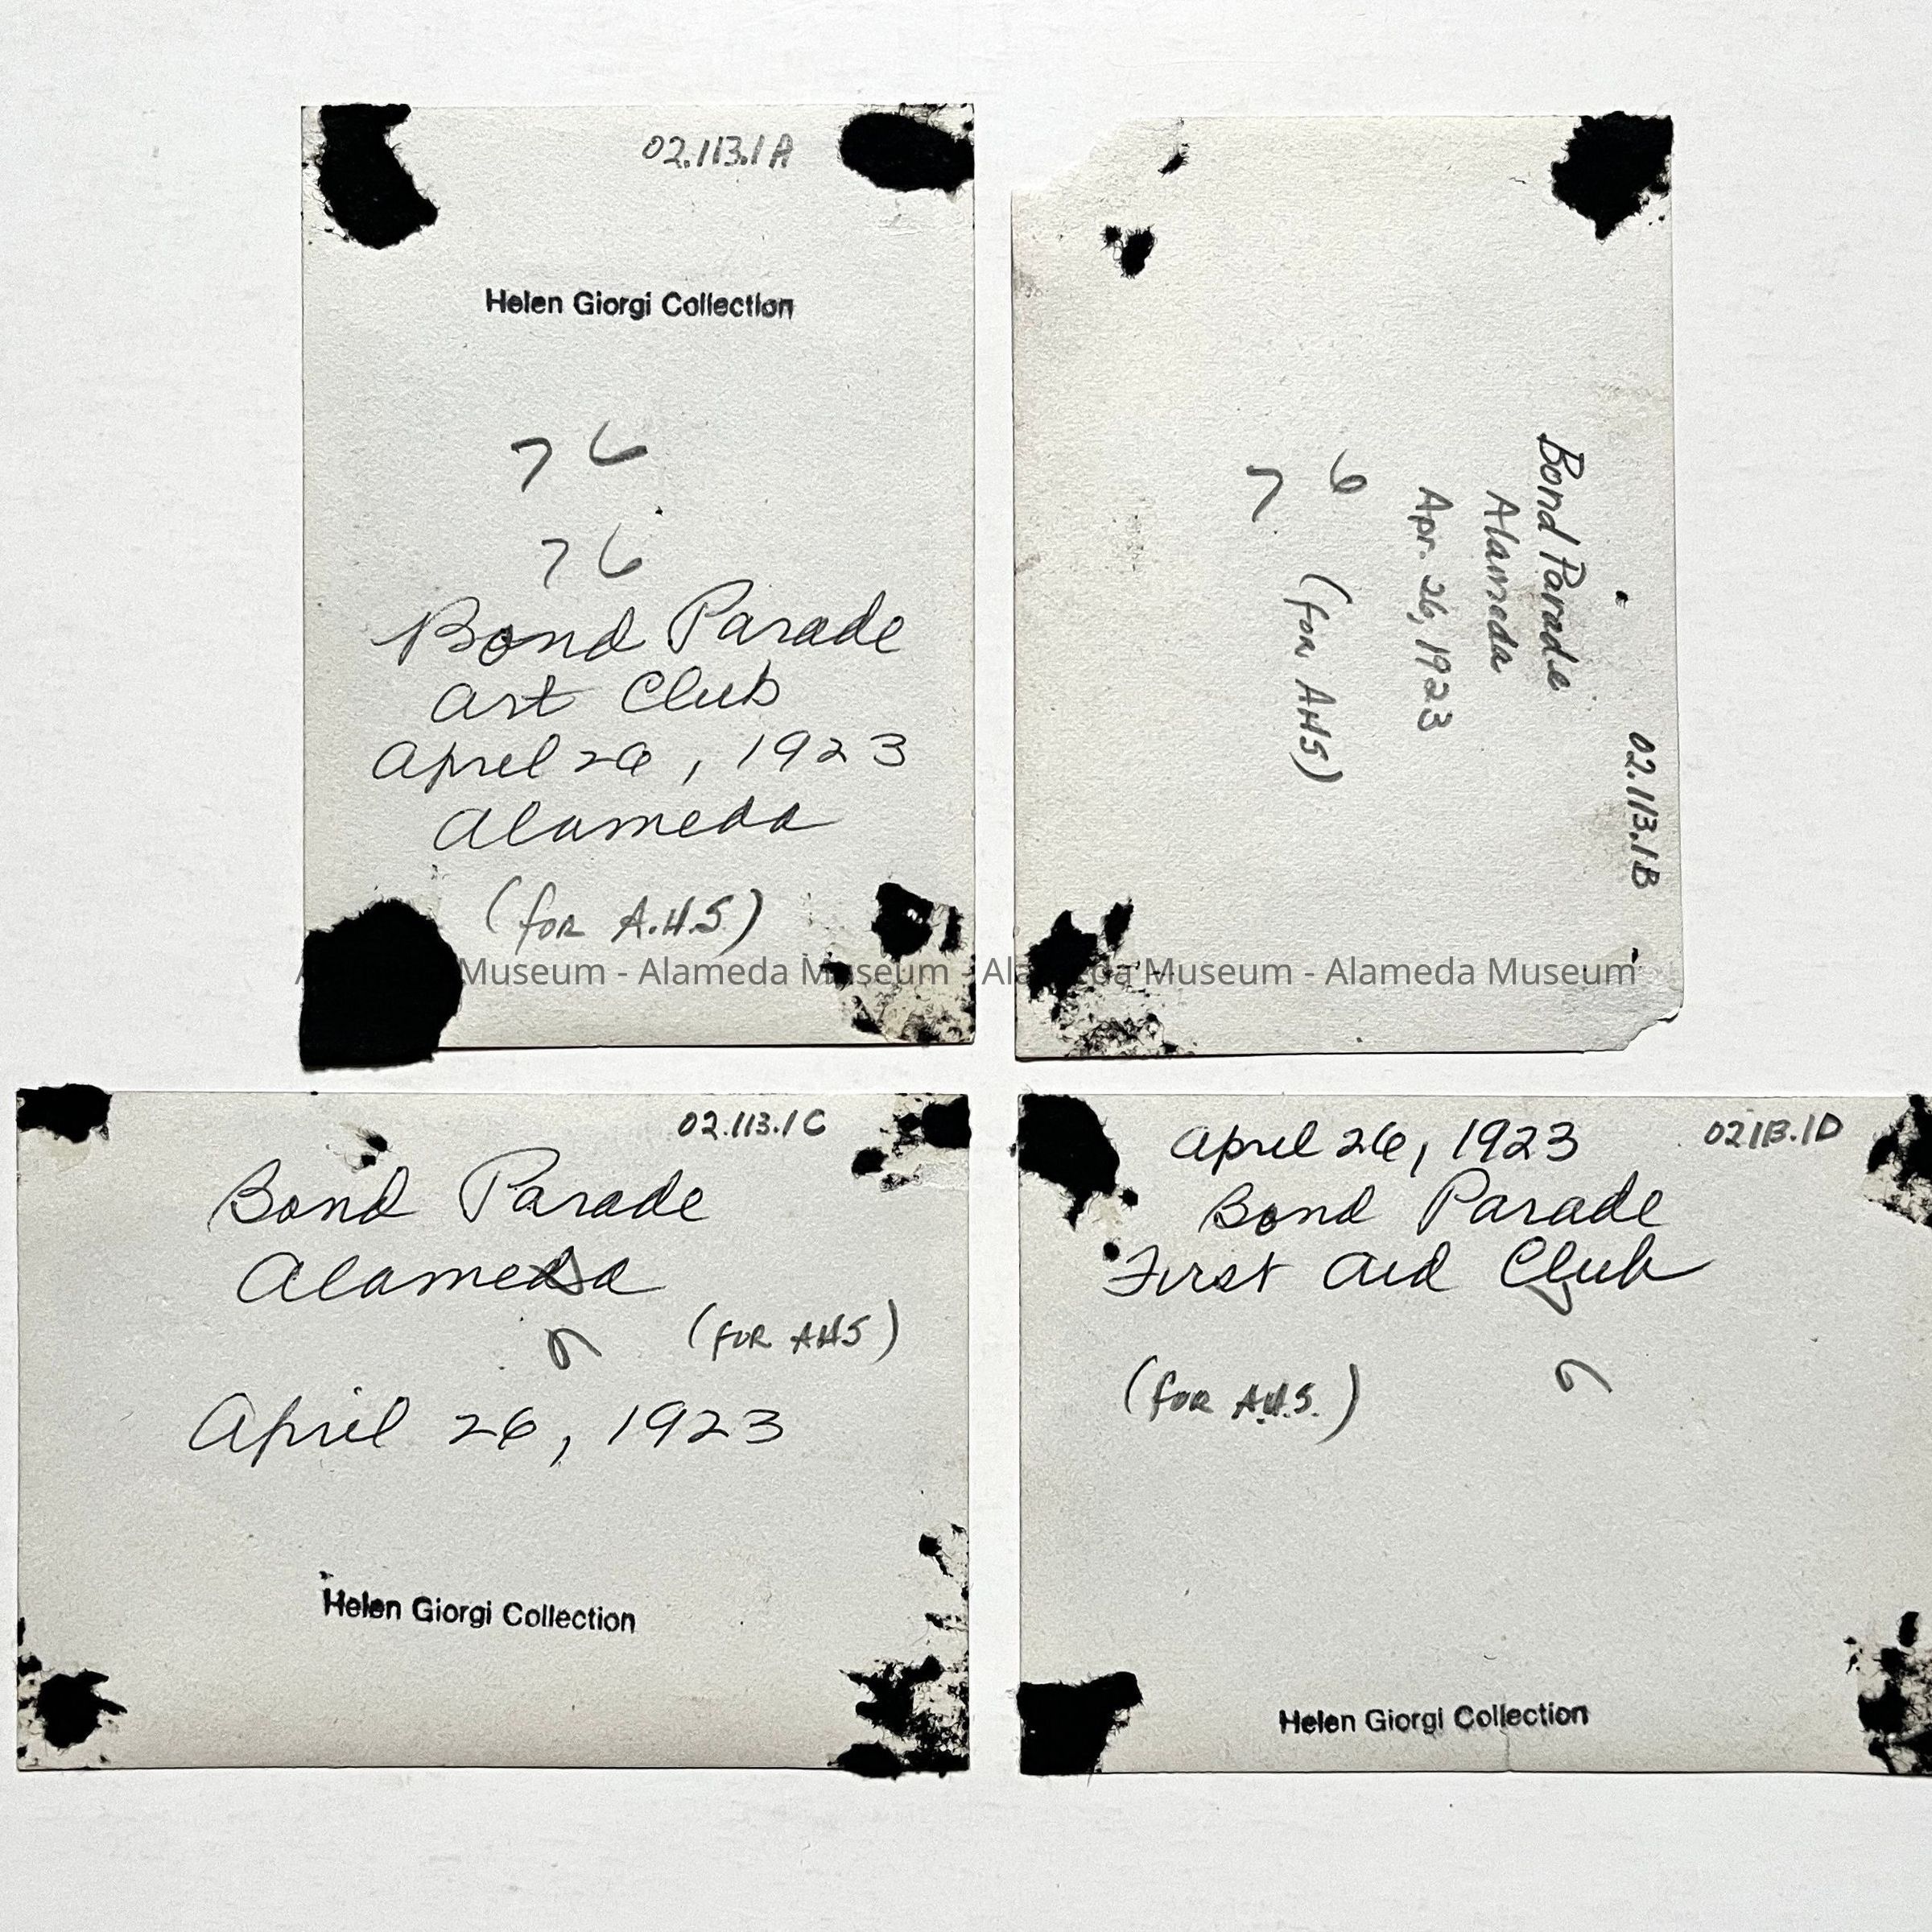 02.113.1A
Helen Giorgi Collection
7 6
7 6
Bond Parade
Art Club
April 26, 1923
Alameda
(for A.H.S)
02.113.1B
Bond Parade
Alameda
Apr. 26, 1923
6 (for AHS)
7
Alameda Museum - Alameda Museum - Alameda Museum - Alameda Museum
02.113.1C
Bond Parade
Alameda
6 (FOR AHS)
April 26, 1923
Helen Giorgi Collection
02113.1D
April 26, 1923
Bond Parade
First Aid Club
6
(for A.H.S.)
Helen Giorgi Collection